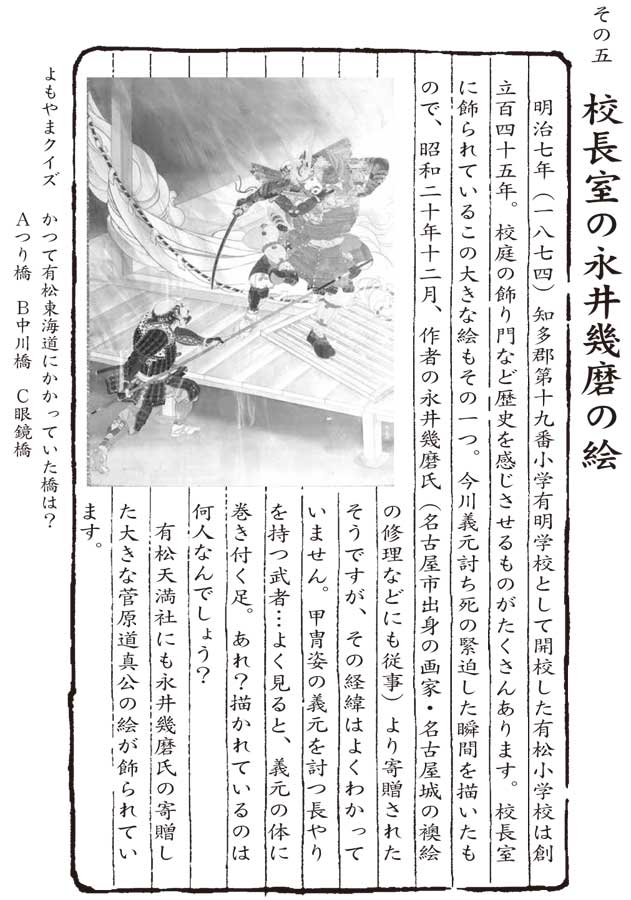 その五
校長室の永井幾磨の絵
明治七年（一八七四）知多郡第十九番小学有明学校として開校した有松小学校は創
立百四十五年。校庭の飾り門など歴史を感じさせるものがたくさんあります。校長室
に飾られているこの大きな絵もその一つ。今川義元討ち死の緊迫した瞬間を描いたも
ので、昭和二十年十二月、作者の永井幾磨氏（名古屋市出身の画家・名古屋城の襖絵
の修理などにも従事）より寄贈された
そうですが、その経緯はよくわかって
いません。甲冑姿の義元を討つ長やり
を持つ武者…よく見ると、義元の体に
巻き付く足。あれ？描かれているのは
何人なんでしょう？
有松天満社にも永井幾磨氏の寄贈し
た大きな菅原道真公の絵が飾られてい
ます。
よもやまクイズ　かつて有松東海道にかかっていた橋は？
Aつり橋　B中川橋　C眼鏡橋